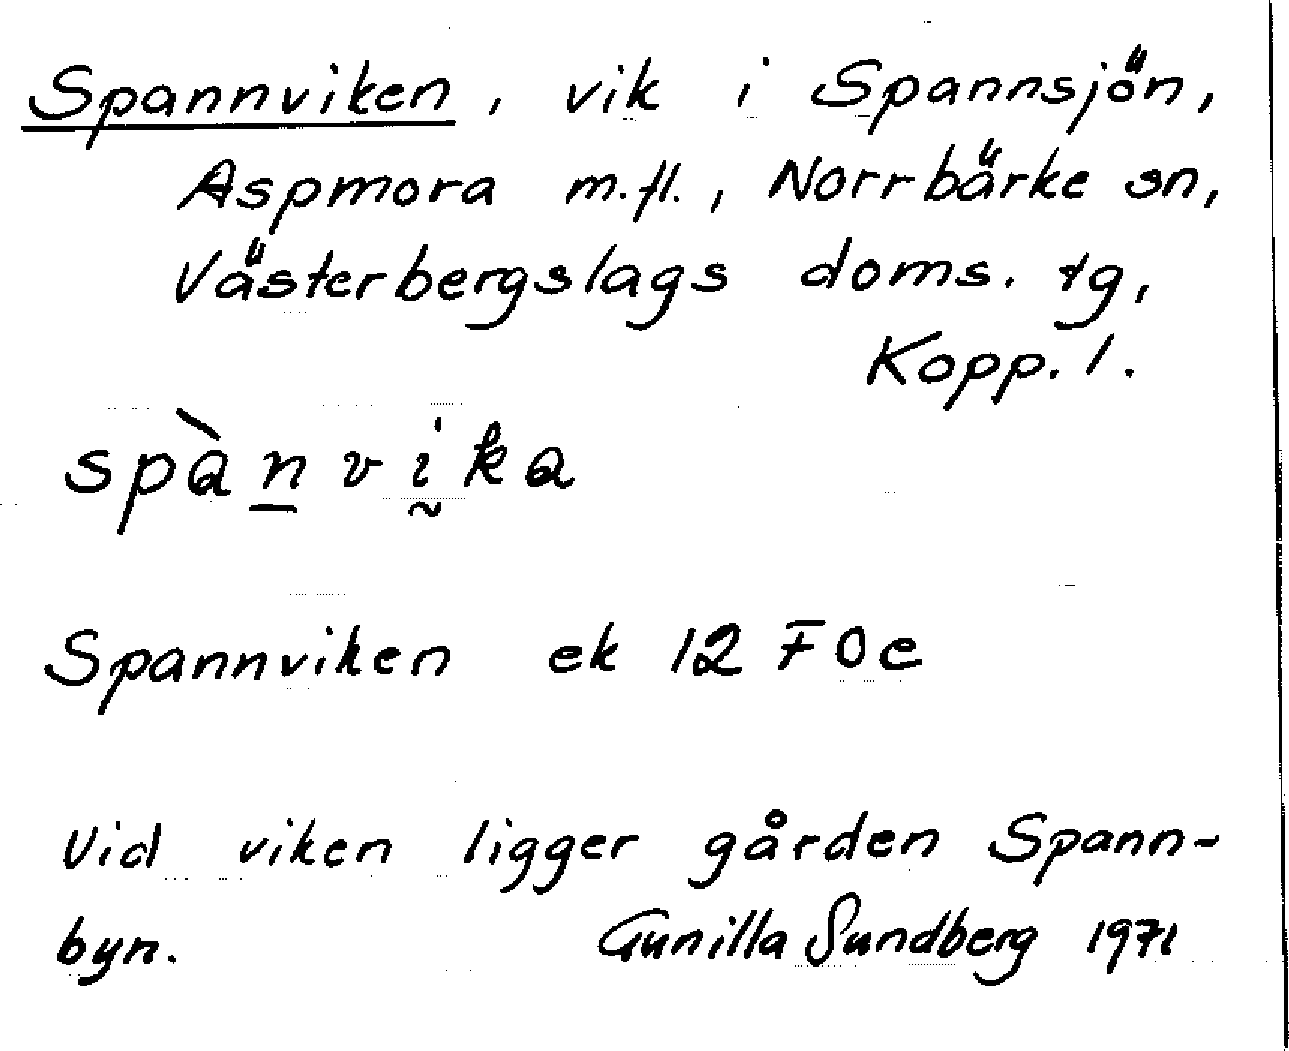 Spannviken, vik i Spannsjön,
Aspmora m.fl., Norrbärke sn,
Västerbergslags doms. tg,
Kopp. l.
spàn̲vḭka
Spannviken ek 12 F 0e
Vid viken ligger gården Spann-
byn. Gunilla Sundberg 1971